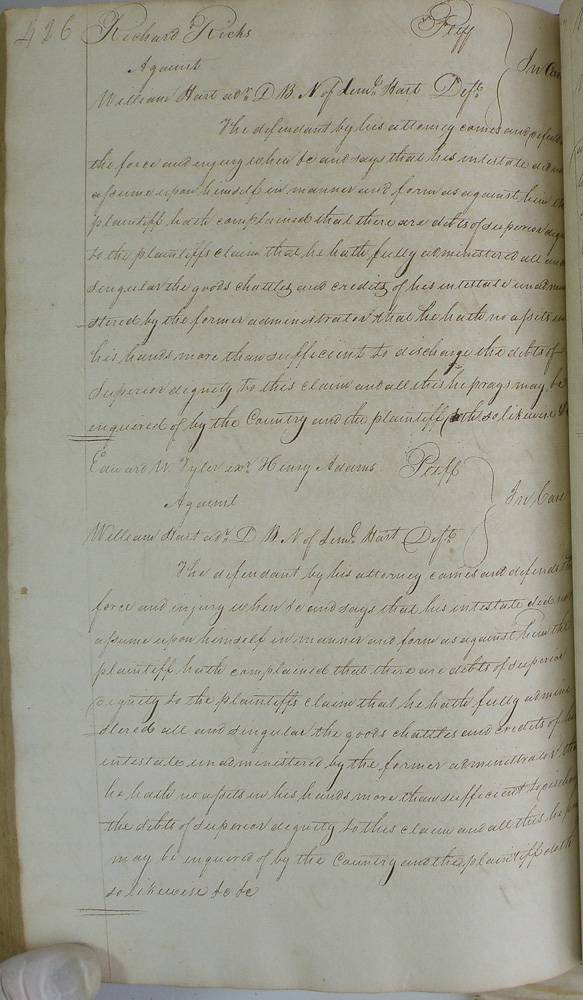 426 Richard Ricks Plff
Against In Ca
William Hart adr. D B. N of Lem. Hart Deft.
The defendant by his attorney comes and defends
the force and injury when &c and says that his intestate did
assume upon himself in manner and form as against him the
plaintiff hath complained that there are debts of superior dig
to the plaintiffs claim that he hath fully administered all and
singular the goods chattles and credits of his intestate unadm
stered by the former administrator that he hath no assets in
his hands more than sufficient to discharge the debts of
Superior dignity to this claim and all this he prays may be
enquered of by the Country and the plaintiff doth so likewise &c
Edward W. Tyler exr. Henry Adams Plff
Against In Case
William Hart adr. D B. N of Lemd. Hart Deft.
The defendant by his attorney comes and defends the
force and injury when &c and says that his intestate did not
assume upon himself in manner and form as against him the
plaintiff hath complained that there are debts of superior
dignity to the plaintiffs claim that he hath fully admini
stered all and singular the goods chattles and credits of his
intestate unadministered by the former administrator that
he hath no assets in his hands more than sufficient to discha
the debts of superior dignity to this claim and all this he
may be inquered of by the Country and the plaintiff doth
so likewise &c &c